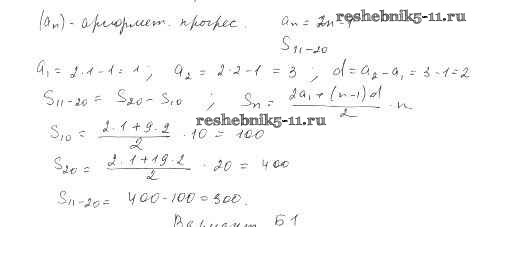 (aₙ) - арифмет. прогрес. aₙ = 2n-1
reshebnik5-11.ru
S₁₁₋₂₀
a₁ = 2·1-1 = 1 ; a₂ = 2·2-1 = 3 ; d = a₂ - a₁ = 3-1 = 2
S₁₁₋₂₀ = S₂₀ - S₁₀ ; Sₙ = (2a₁ + (n-1)d)/2 · n
reshebnik5-11.ru
S₁₀ = (2·1+9·2)/2 · 10 = 100
S₂₀ = (2·1+19·2)/2 · 20 = 400
S₁₁₋₂₀ = 400-100 = 300.
Вариант Б1